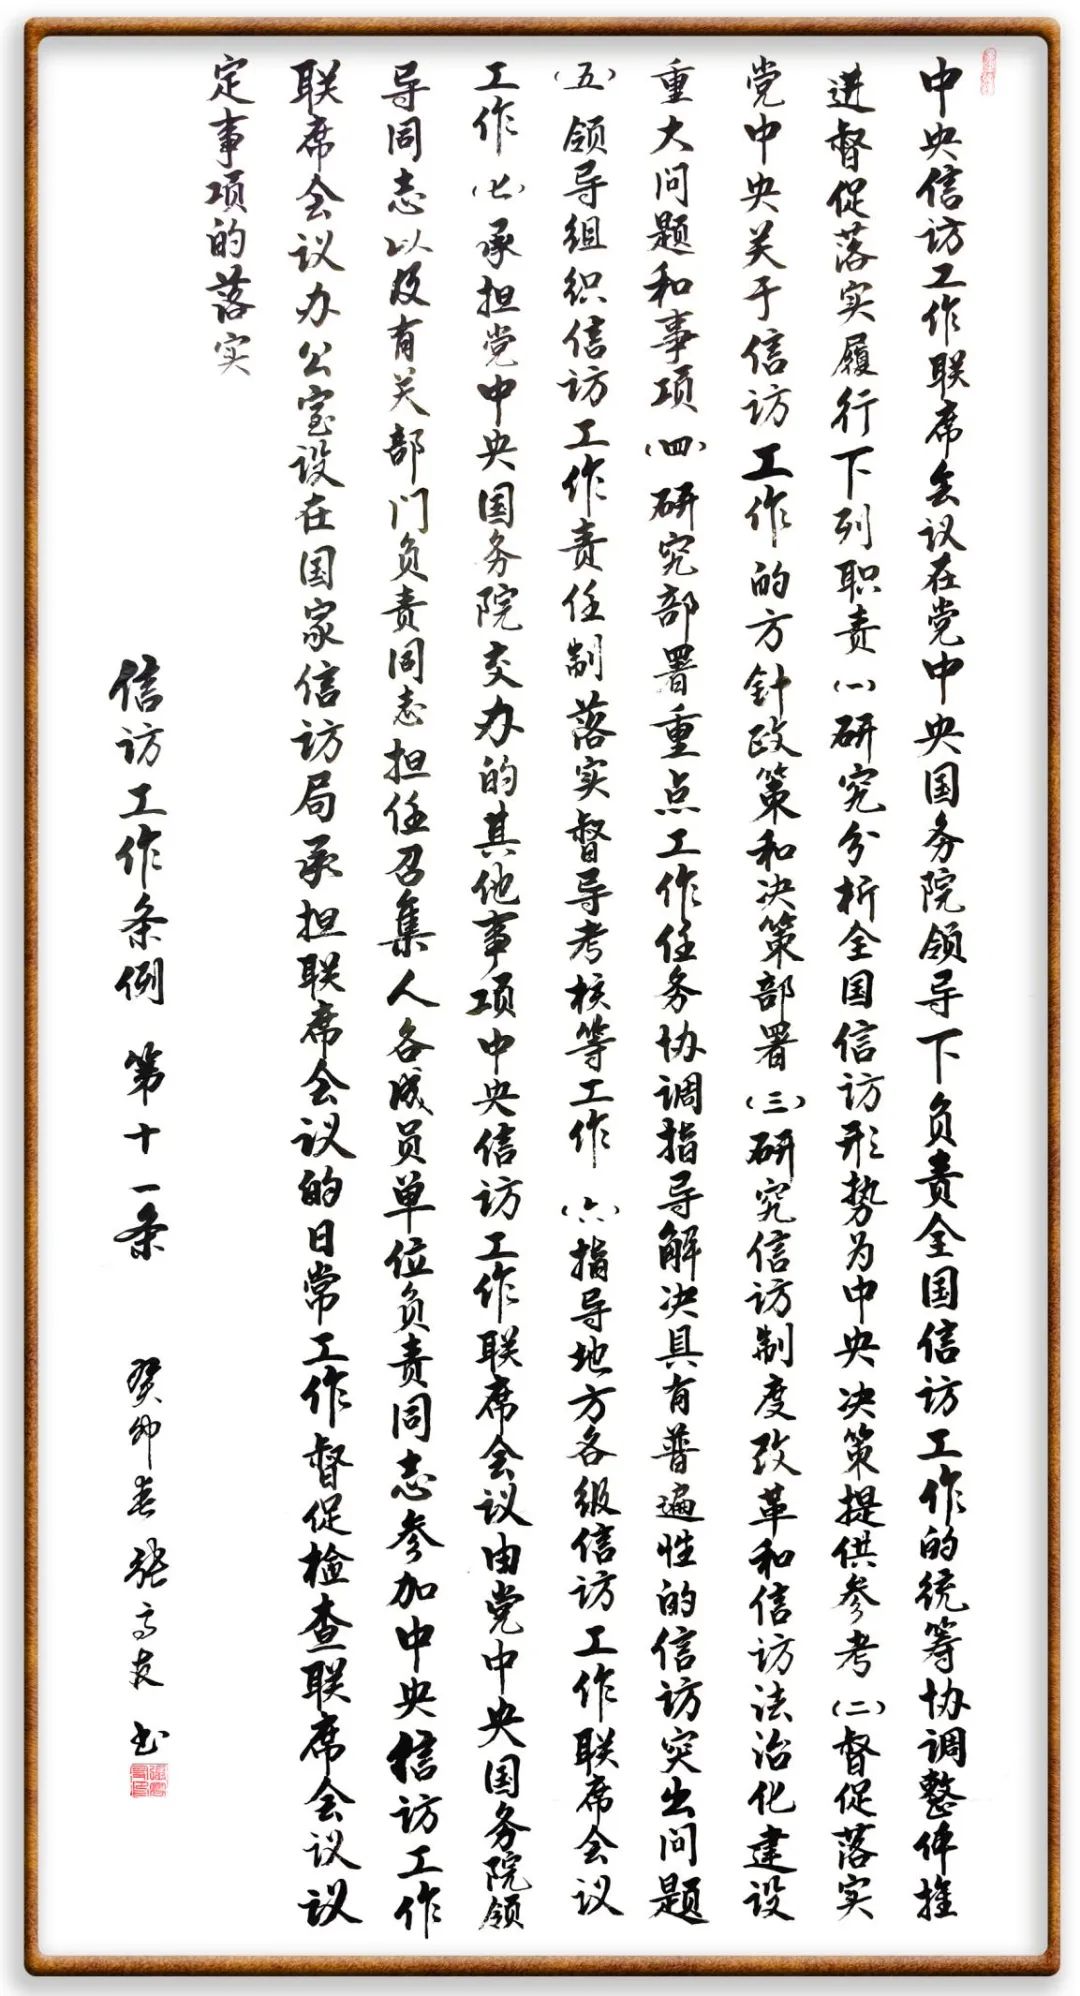 中央信访工作联席会议在党中央国务院领导下负责全国信访工作的统筹协调整体推
进督促落实履行下列职责(一)研究分析全国信访形势为中央决策提供参考(二)督促落实
党中央关于信访工作的方針政策和决策部署(三)研究信访制度改革和信访法治化建设
重大问题和事项(四)研究部署重点工作任务协调指导解决具有普遍性的信访突出问题
(五)领导组织信访工作责任制落实督导考核等工作(六)指导地方各级信访工作联席会议
工作(七)承担党中央国务院交办的其他事项中央信访工作联席会议由党中央国务院领
导同志以及有关部门负责同志担任召集人各成员单位负责同志参加中央信访工作
联席会议办公室设在国家信访局承担联席会议的日常工作督促检查联席会议议
定事项的落实
信访工作条例 第十一条 癸卯春 张高友 书